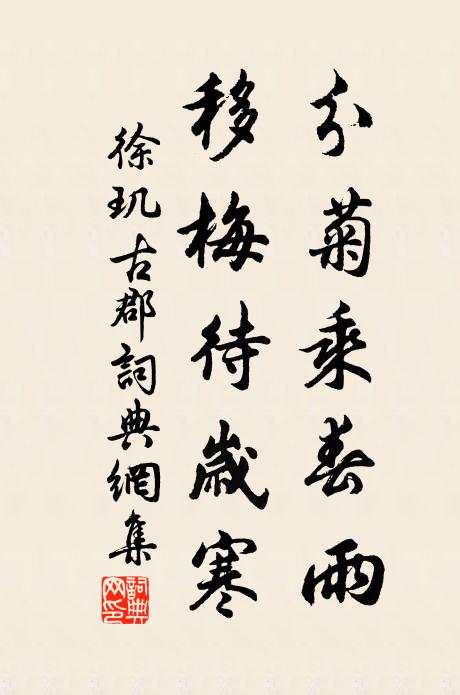 分菊乘春雨
移梅待歲寒
徐玑古郡詞典網集
詞典网印